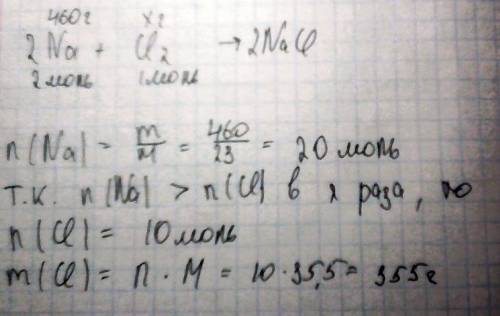 460г х г
2Na + Cl2 → 2NaCl
2моль 1моль
n(Na) = m/M = 460/23 = 20 моль
т.к. n(Na) > n(Cl) в 2 раза, то
n(Cl) = 10 моль
m(Cl) = n · M = 10·35,5 = 355г